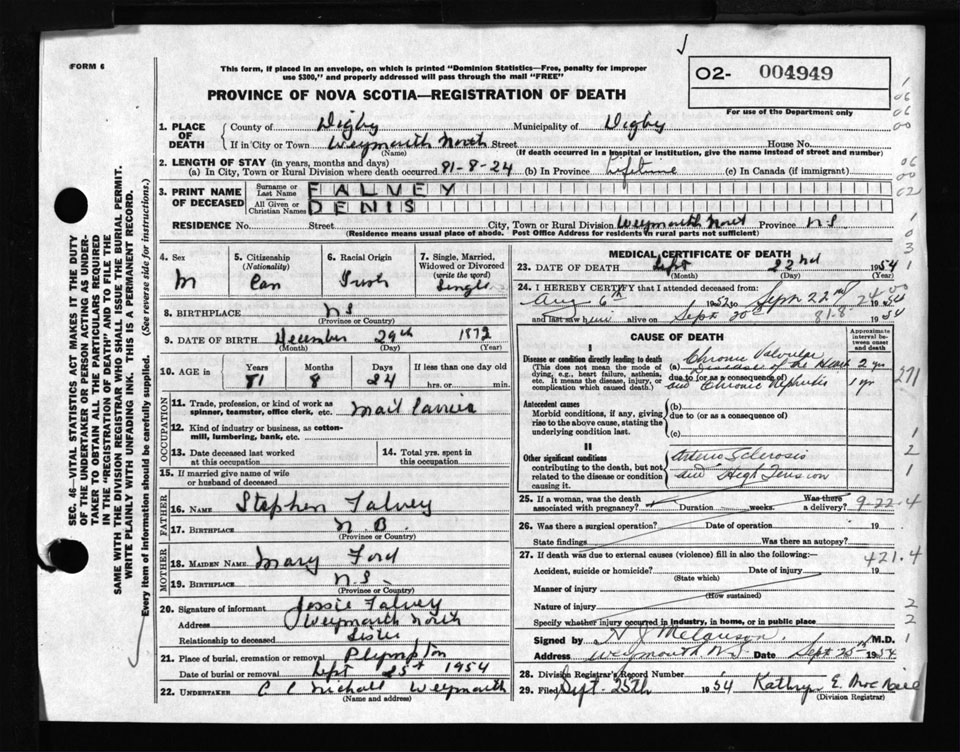 FORM 6
This form, if placed in an envelope, on which is printed "Dominion Statistics—Free, penalty for improper
use $300," and properly addressed will pass through the mail "FREE"
02- 004949
For use of the Department only
PROVINCE OF NOVA SCOTIA—REGISTRATION OF DEATH
SEC. 46—VITAL STATISTICS ACT MAKES IT THE DUTY
OF THE UNDERTAKER OR PERSON ACTING AS UNDER-
TAKER TO OBTAIN ALL THE PARTICULARS REQUIRED
IN THE "REGISTRATION OF DEATH" AND TO FILE THE
SAME WITH THE DIVISION REGISTRAR WHO SHALL ISSUE THE BURIAL PERMIT.
WRITE PLAINLY WITH UNFADING INK. THIS IS A PERMANENT RECORD.
Every item of information should be carefully supplied. (See reverse side for instructions.)
1. PLACE OF DEATH
County of Digby Municipality of Digby
If in City or Town Weymouth North Street House No.
(Name) (If death occurred in a hospital or institution, give the name instead of street and number)
2. LENGTH OF STAY (in years, months and days)
(a) In City, Town or Rural Division where death occurred 81-8-24 (b) In Province Lifetime (c) In Canada (if immigrant)
3. PRINT NAME OF DECEASED
Surname or Last Name FALVEY
All Given or Christian Names DENIS
RESIDENCE No. Street City, Town or Rural Division Weymouth North Province N.S
(Residence means usual place of abode. Post Office Address for residents in rural parts not sufficient)
4. Sex M
5. Citizenship (Nationality) Can
6. Racial Origin Irish
7. Single, Married, Widowed or Divorced (write the word) Single
8. BIRTHPLACE N S
(Province or Country)
9. DATE OF BIRTH December 29th 1872
(Month) (Day) (Year)
10. AGE in Years Months Days If less than one day old
81 8 24 hrs. or min.
OCCUPATION
11. Trade, profession, or kind of work as
spinner, teamster, office clerk, etc. Mail Carrier
12. Kind of industry or business, as cotton-
mill, lumbering, bank, etc.
13. Date deceased last worked
at this occupation
14. Total yrs. spent in
this occupation
15. If married give name of wife
or husband of deceased
FATHER
16. NAME Stephen Falvey
17. BIRTHPLACE N. B.
(Province or Country)
MOTHER
18. MAIDEN NAME Mary Ford
19. BIRTHPLACE N.S.
(Province or Country)
20. Signature of informant Jessie Falvey
Address Weymouth North
Relationship to deceased Sister
21. Place of burial, cremation or removal Plympton
Date of burial or removal Sept 25th 1954
22. UNDERTAKER Weymouth
(Name and address)
MEDICAL CERTIFICATE OF DEATH
23. DATE OF DEATH Sept 22nd 1954
(Month) (Day) (Year)
24. I HEREBY CERTIFY that I attended deceased from:
Aug 6th 1952 to Sept 22nd 1954
and last saw him alive on Sept 20th 1954
81-8-
CAUSE OF DEATH
Approximate interval between onset and death
I
Disease or condition directly leading to death
(This does not mean the mode of
dying, e.g., heart failure, asthenia,
etc. It means the disease, injury, or
complication which caused death.)
(a) Chronic Valvular
Disease of the Heart 2 yrs
due to (or as a consequence of)
and Chronic Nephritis 1 yr
Antecedent causes
Morbid conditions, if any, giving
rise to the above cause, stating the
underlying condition last.
(b)
due to (or as a consequence of)
(c)
II
Other significant conditions
contributing to the death, but not
related to the disease or condition
causing it.
Arterio Sclerosis
and High Tension
25. If a woman, was the death
associated with pregnancy? Duration weeks. Was there
a delivery? 9-22-4
26. Was there a surgical operation? Date of operation 19
State findings Was there an autopsy?
27. If death was due to external causes (violence) fill in also the following:—
Accident, suicide or homicide? Date of injury 19
(State which)
421.4
Manner of injury
(How sustained)
Nature of injury
Specify whether injury occurred in industry, in home, or in public place
Signed by M.D.
Address Weymouth N.S. Date Sept 25th 1954
28. Division Registrar's Record Number
29. Filed Sept. 25th 1954 Kathryn E. MacNeill
(Division Registrar)